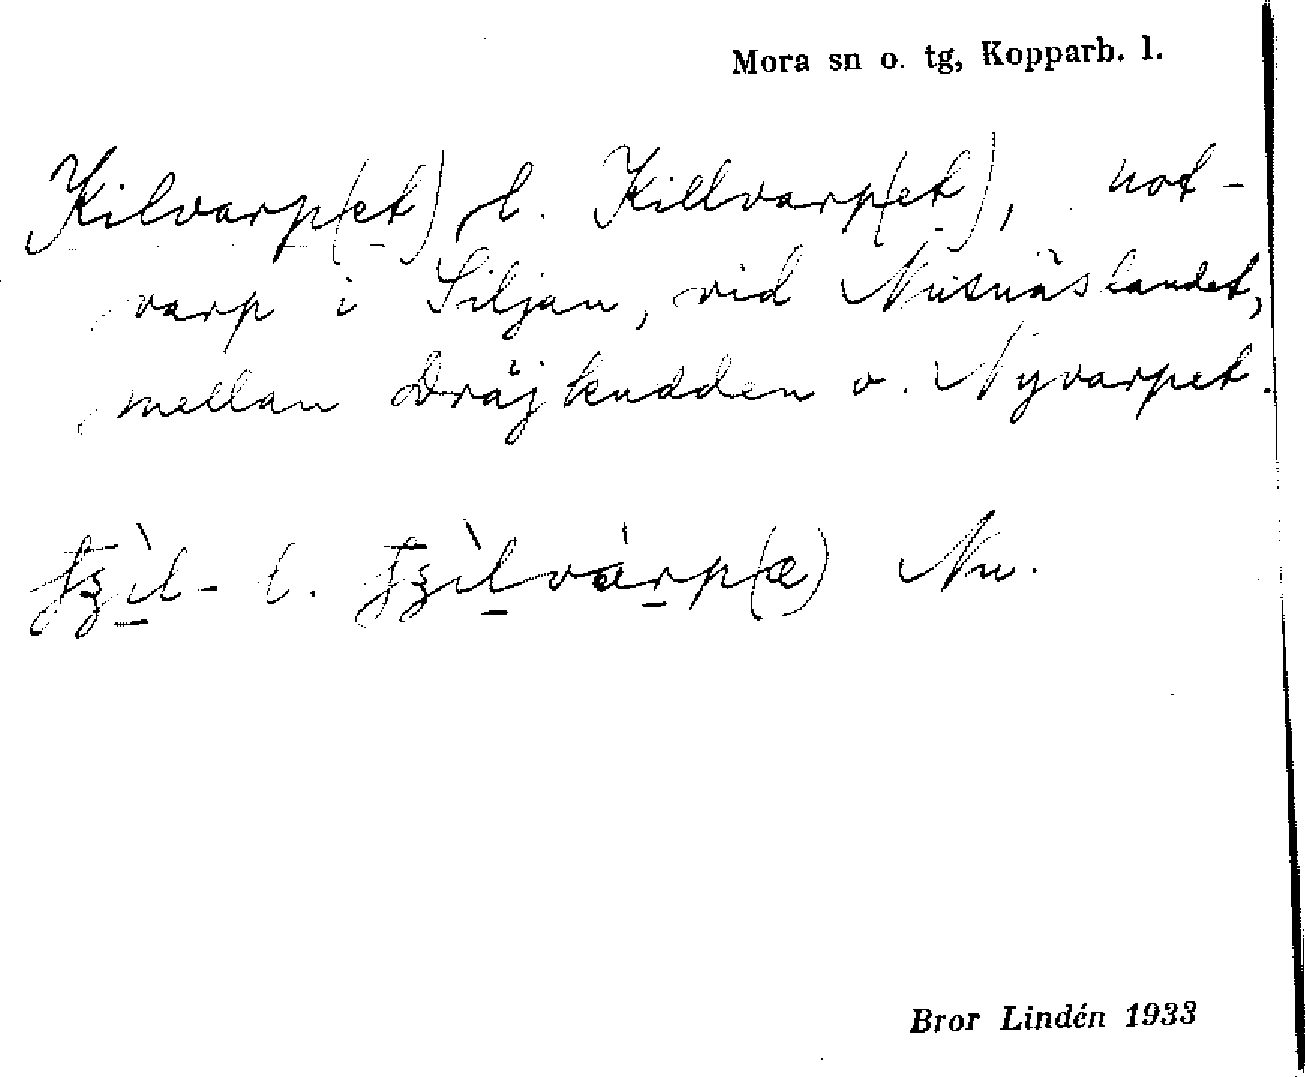 Mora sn o. tg, Kopparb. l.
Kilvarp(et) l. Killvarp(et), not-
varp i Siljan, vid Nusnäslandet,
mellan Dräjkudden o. Nyvarpet.
l. Nu.
Bror Lindén 1933